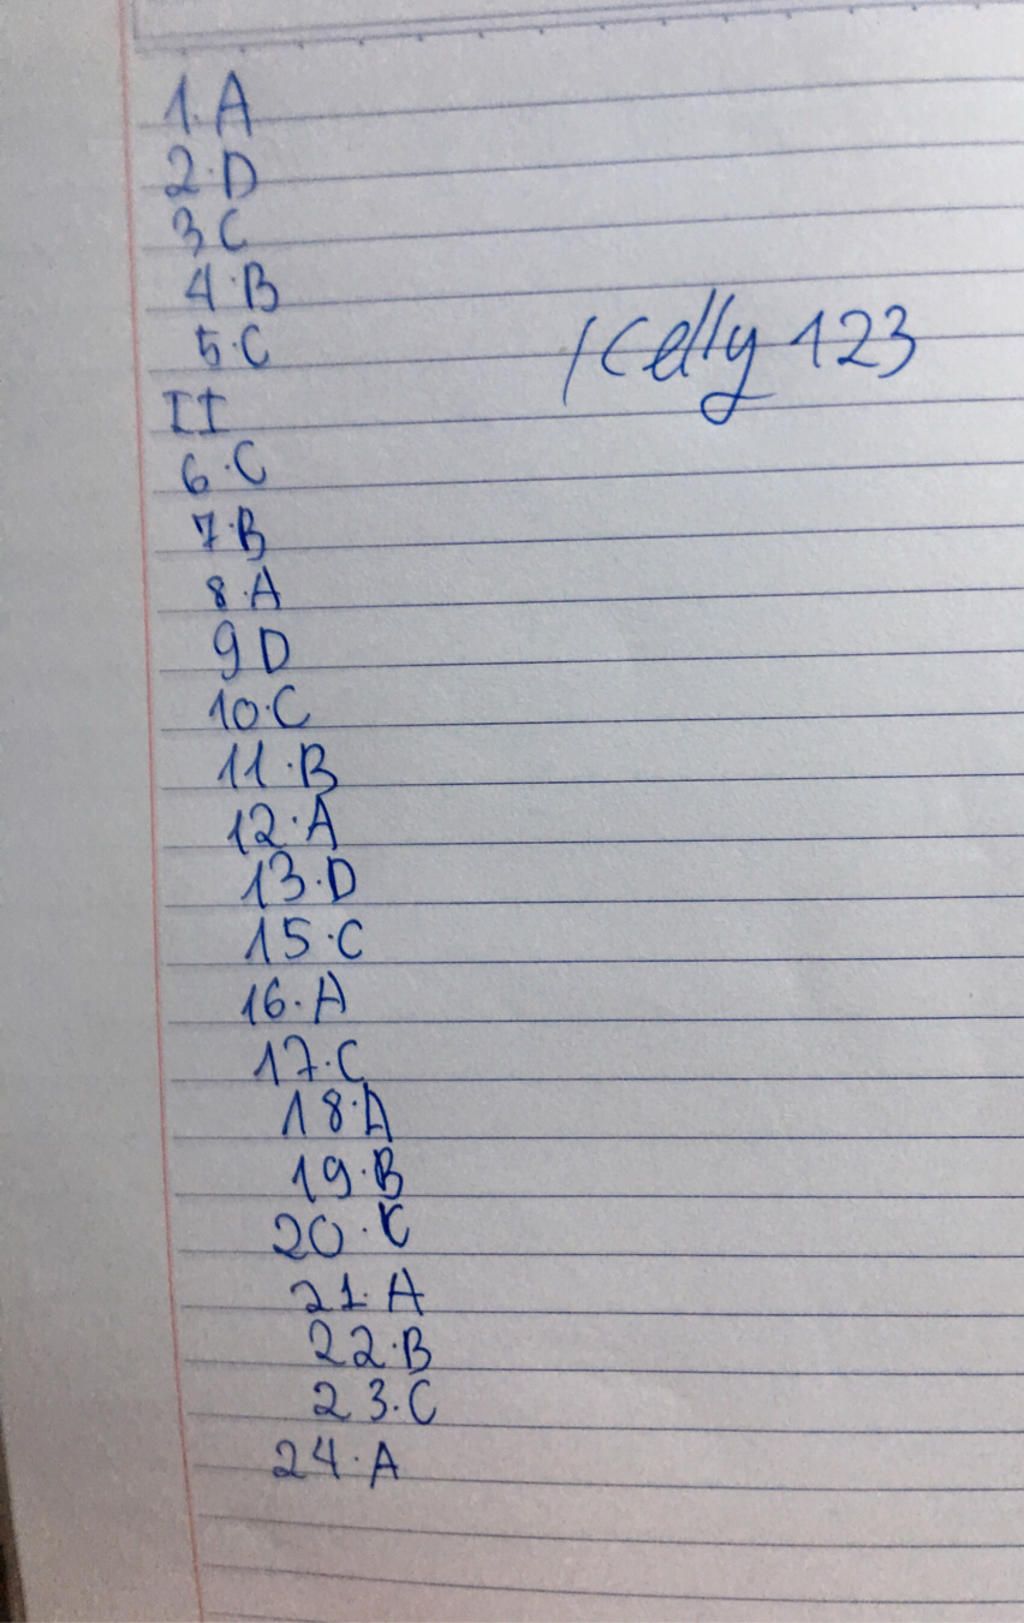 1. A
2. D
3 C
4. B
5. C
Kelly 123
II
6. C
7. B
8. A
9 D
10. C
11. B
12. A
13. D
15. C
16. A
17. C
18. A
19. B
20. C
21. A
22. B
23. C
24. A